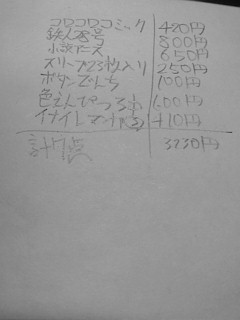 コロコロコミック 420円
鉄人28号 800円
小説エース 650円
スリーブ23枚入り 250円
ボタンでんち 100円
色えんぴつ
イナイレ 110円
計7点 3230円